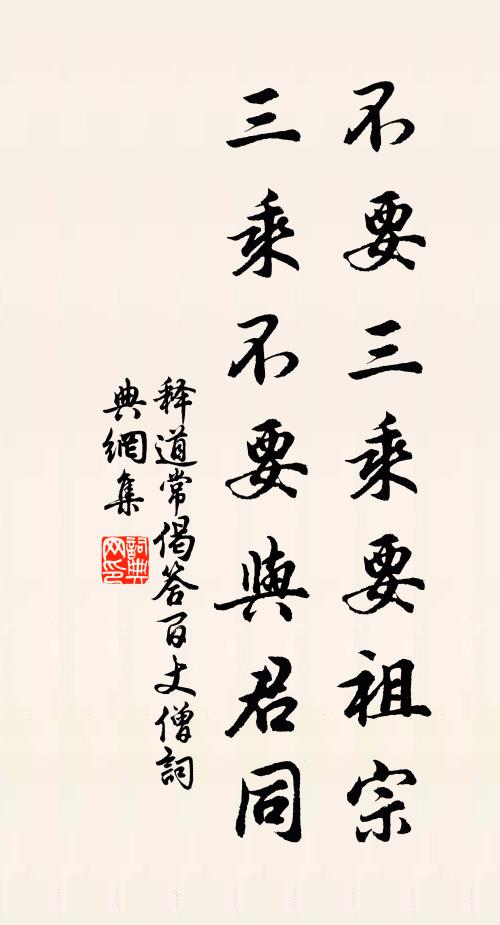 不要三乘要祖宗
三乘不要與君同
释道常偈答百丈僧詞
典網集
詞典網印